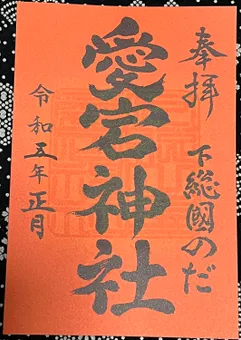 奉拝
下総國のだ
愛宕神社
令和五年正月